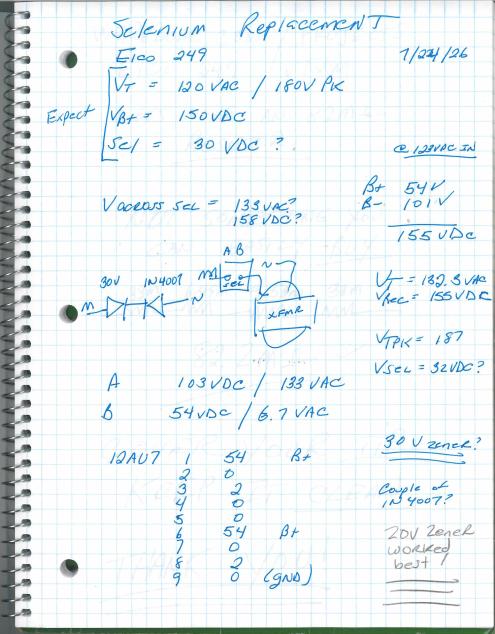 Selenium Replacement
Eico 249 1/24/26
Expect
VT = 120 VAC / 180V PK
VB+ = 150VDC
Sel = 30 VDC ?
@ 122VAC IN
V across sel = 133VAC?
158VDC?
B+ 54V
B- 101V
155VDC
A B
N
M
sel
30V 1N4007
M N
XFMR
VT = 132.3VAC
VREC = 155VDC
VTPK = 187
VSEL = 32VDC?
A 103VDC / 133VAC
B 54VDC / 6.7VAC
30V zener?
12AU7 1 54 B+
2 0
3 2
4 0
5 0
6 54 B+
7 0
8 2
9 0 (GND)
Couple of
1N4007?
20V Zener
worked
best!